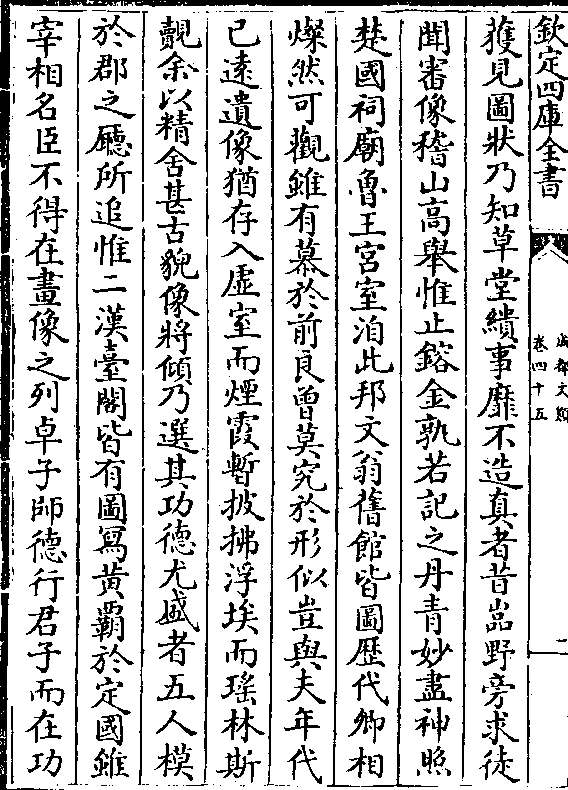 欽定四庫全書
成都文類
卷四十五
二
獲見圖狀乃知草堂繢事靡不造真者昔嵓野旁求徒
聞審像稽山高舉惟止鎔金孰若記之丹青妙盡神照
楚國祠廟魯王宮室洎此邦文翁舊館皆圖歷代卿相
燦然可觀雖有慕於前良曾莫究於形似豈與夫年代
已遠遺像猶存入虛室而煙霞暫披拂浮埃而瑤林斯
覿余以精舍甚古貌像將傾乃選其功德尤盛者五人模
於郡之廳所追惟二漢臺閣皆有圖寫黃霸於定國雖
宰相名臣不得在畫像之列卓子師德行君子而在功